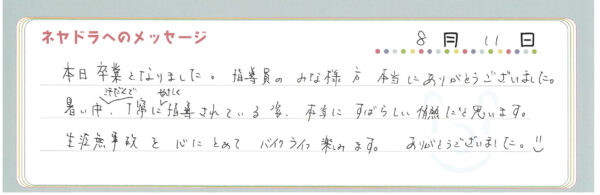 ネヤドラへのメッセージ
8月11日
本日卒業となりました。指導員のみな様方 本当にありがとうございました。
汗だくで やさしく
暑い中、丁寧に指導されている姿、本当にすばらしい情熱だと思います。
生涯無事故を心にとめてバイクライフ楽みます。ありがとうございました。